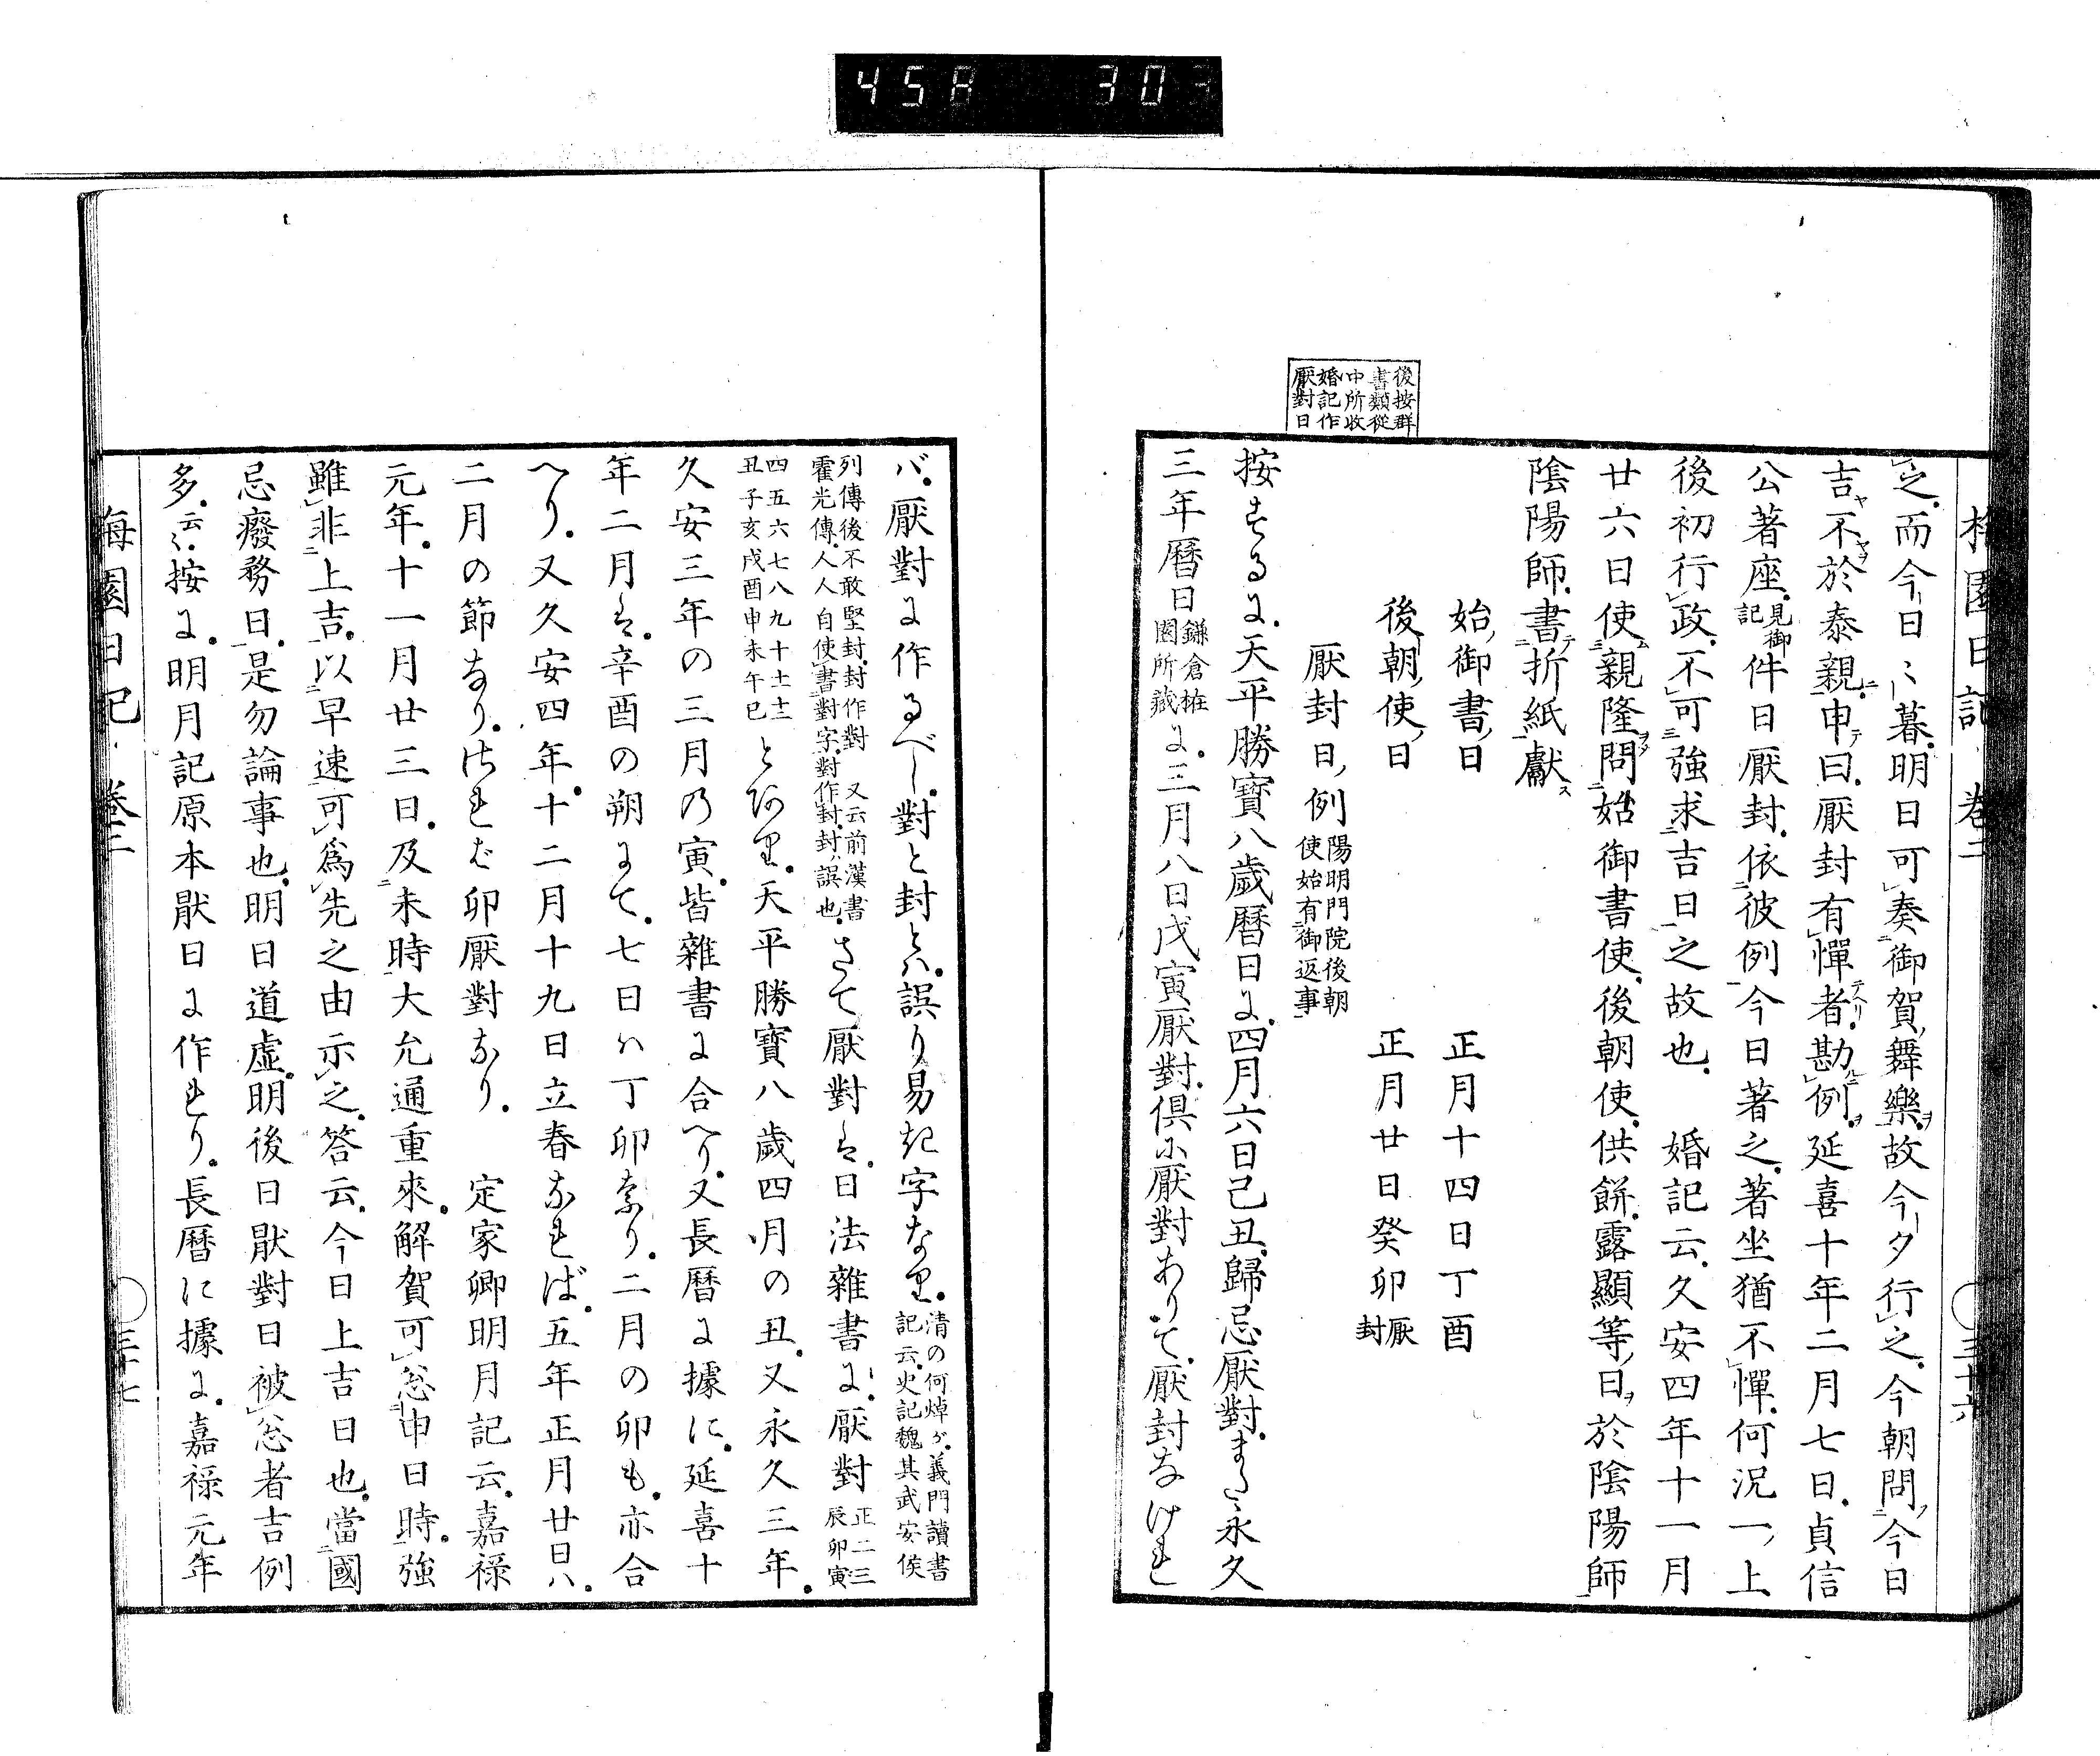 458 303
梅園日記 卷二 ○三十六
之。而今日〻暮。明日可奏御賀舞樂。故今夕行之。今朝問今日
吉不於泰親。申曰。厭封有憚者。勘例。延喜十年二月七日。貞信
公著座。見御記件日厭封。依彼例今日著之。著坐猶不憚。何況一上
後初行政。不可強求吉日之故也。 婚記云。久安四年十一月
廿六日使親隆問始御書使。後朝使。供餅。露顯等日。於陰陽師
陰陽師。書折紙獻
始御書日 正月十四日丁酉
後朝使日 正月廿日癸卯厭封
厭封日例陽明門院後朝使始有御返事
後按群書類從中所收婚記作厭對日
按ずるに。天平勝寶八歲曆日に。四月六日己丑。歸忌厭對。また永久
三年曆日鎌倉荘園所藏に。三月八日戊寅厭對。倶に厭對ありて。厭封なけれ
バ。厭對に作るべし。對と封とハ。誤り易き字なり。清の何焯が。義門讀書記云。史記魏其武安侯
列傳後不敢堅封。封作對 又云前漢書霍光傳。人人自使書對字。對作封。封ハ誤也。さて厭對は。日法雜書に。厭對正二三辰卯寅
四五六七八九十十一十二丑子亥戌酉申未午巳とあり。天平勝寶八歲四月の丑。又永久三年。
久安三年の三月の寅。皆雜書に合へり。又長曆に據に。延喜十
年二月は。辛酉の朔にて。七日ハ丁卯なり。二月の卯も。亦合
へり。又久安四年。十二月十九日立春なれば。五年正月廿日ハ。
二月の節なり。さればや卯厭對なり。 定家卿明月記云。嘉祿
元年。十一月廿三日。及未時大允通重來。解賀可忩申日時。強
雖非上吉。以早速可爲先之由示之。答云。今日上吉日也。當國
忌癈務日。是勿論事也。明日道虛。明後日猒對日被忩者吉例
多。云〻。按に。明月記原本猒日に作れり。長曆に據に。嘉祿元年
梅園日記 卷二 ○三十七